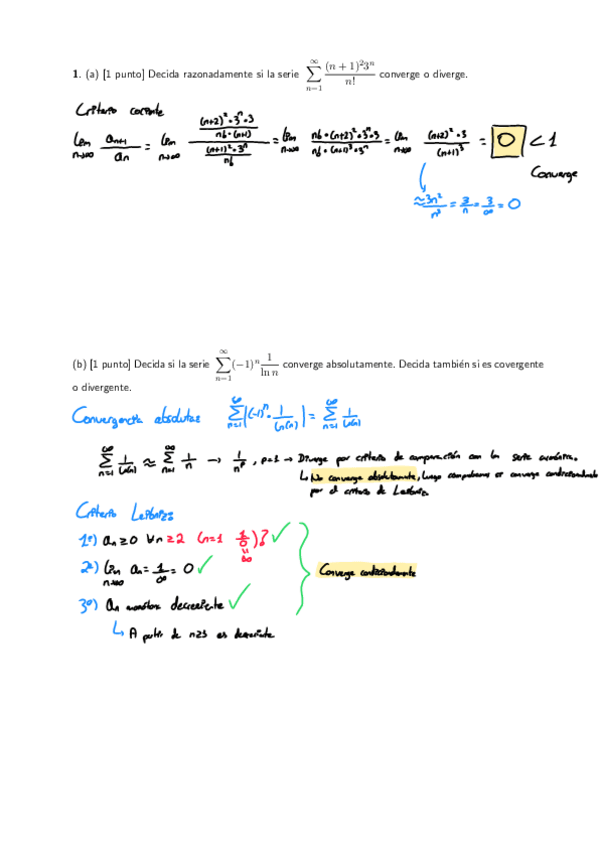 1. (a) [1 punto] Decida razonadamente si la serie ∑_{n=1}^{∞} (n+1)²3ⁿ / n! converge o diverge.
Criterio cociente
lim_{n→∞} a_{n+1}/a_n = lim_{n→∞} ((n+2)²·3ⁿ·3 / n!·(n+1)) / ((n+1)²·3ⁿ / n!) = lim_{n→∞} n!·(n+2)²·3ⁿ·3 / n!·(n+1)³·3ⁿ = lim_{n→∞} (n+2)²·3 / (n+1)³ = 0 < 1
Converge
≈ 3n²/n³ = 3/n = 3/∞ = 0
(b) [1 punto] Decida si la serie ∑_{n=1}^{∞} (−1)ⁿ 1/ln n converge absolutamente. Decida también si es covergente
o divergente.
Convergencia absoluta ∑_{n=1}^{∞} |(-1)ⁿ · 1/ln(n)| = ∑_{n=1}^{∞} 1/ln(n)
∑_{n=1}^{∞} 1/ln(n) ≈ ∑_{n=1}^{∞} 1/n → 1/nᵖ, p=1 → Diverge por criterio de comparación con la serie armónica.
↳ No converge absolutamente, luego comprobamos si converge condicionalmente
por el criterio de Leibniz.
Criterio Leibniz
1º) aₙ ≥ 0 ∀n ≥ 2 (n=1 1/0)? ✓
∞
2º) lim_{n→∞} aₙ = 1/∞ = 0 ✓
Converge condicionalmente
3º) aₙ monótona decreciente ✓
↳ A partir de n≥3 es decreciente